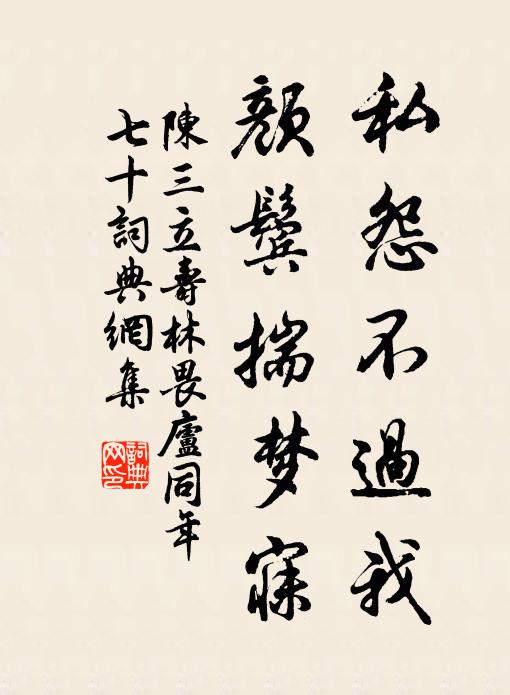 私怨不過我
顏鬢揣梦寐
陳三立壽林畏廬同年
七十詞典網集
詞典网印